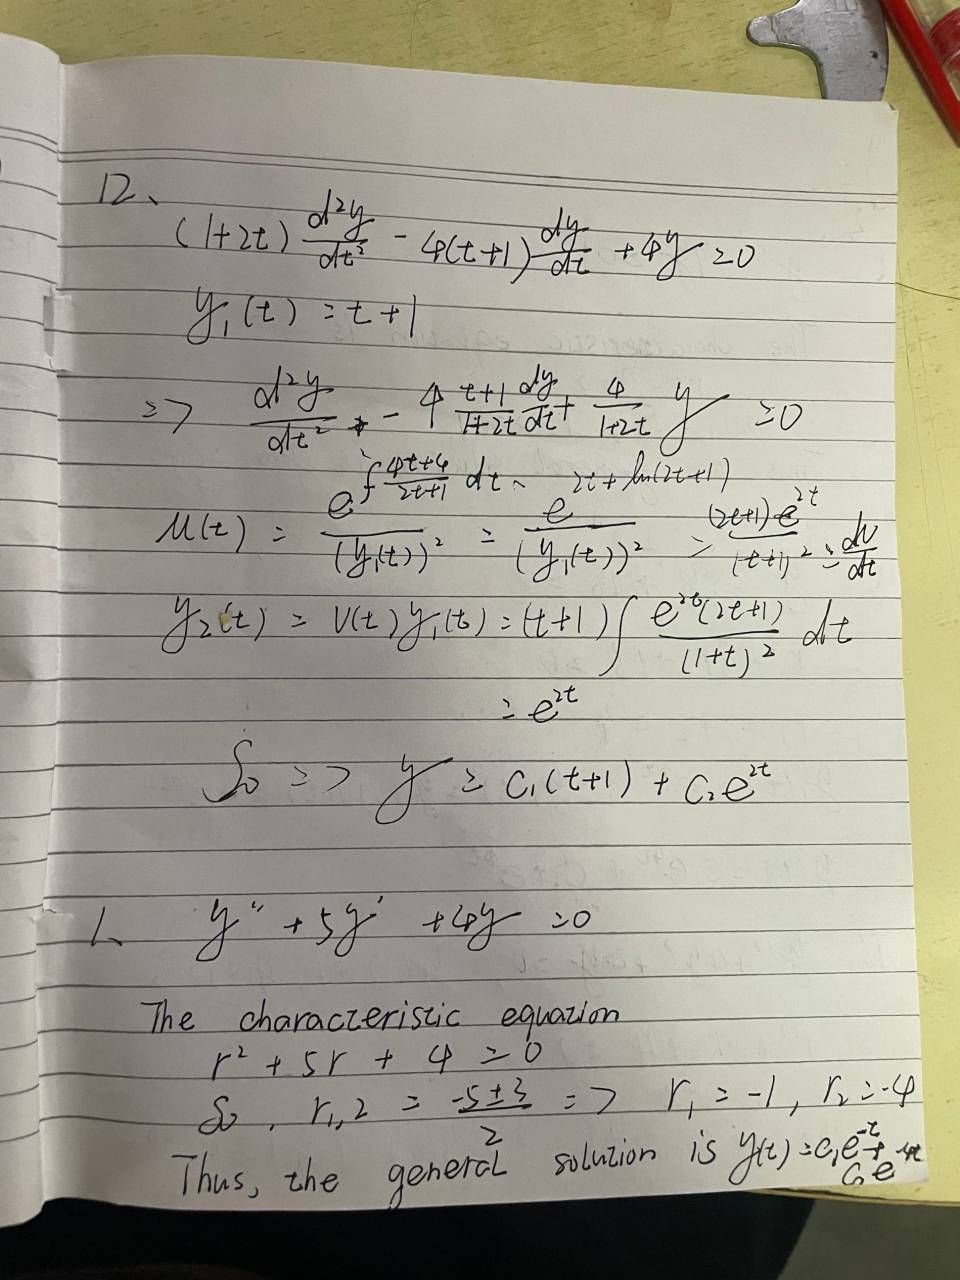 12、
(1+2t) d²y/dt² - 4(t+1) dy/dt + 4y = 0
y₁(t) = t+1
=> d²y/dt² - 4 t+1/1+2t dy/dt + 4/1+2t y = 0
u(t) = e^∫ 4t+4/2t+1 dt / (y₁(t))² = e^2t+ln(2t+1) / (y₁(t))² = (2t+1)e^2t / (t+1)² = dv/dt
y₂(t) = v(t)y₁(t) = (t+1) ∫ e^2t(2t+1) / (1+t)² dt
= e^2t
So => y = C₁(t+1) + C₂e^2t
1、 y'' + 5y' + 4y = 0
The characteristic equation
r² + 5r + 4 = 0
So, r₁,₂ = -5±3/2 => r₁ = -1, r₂ = -4
Thus, the general solution is y(t) = C₁e^-t +
C₂e^-4t